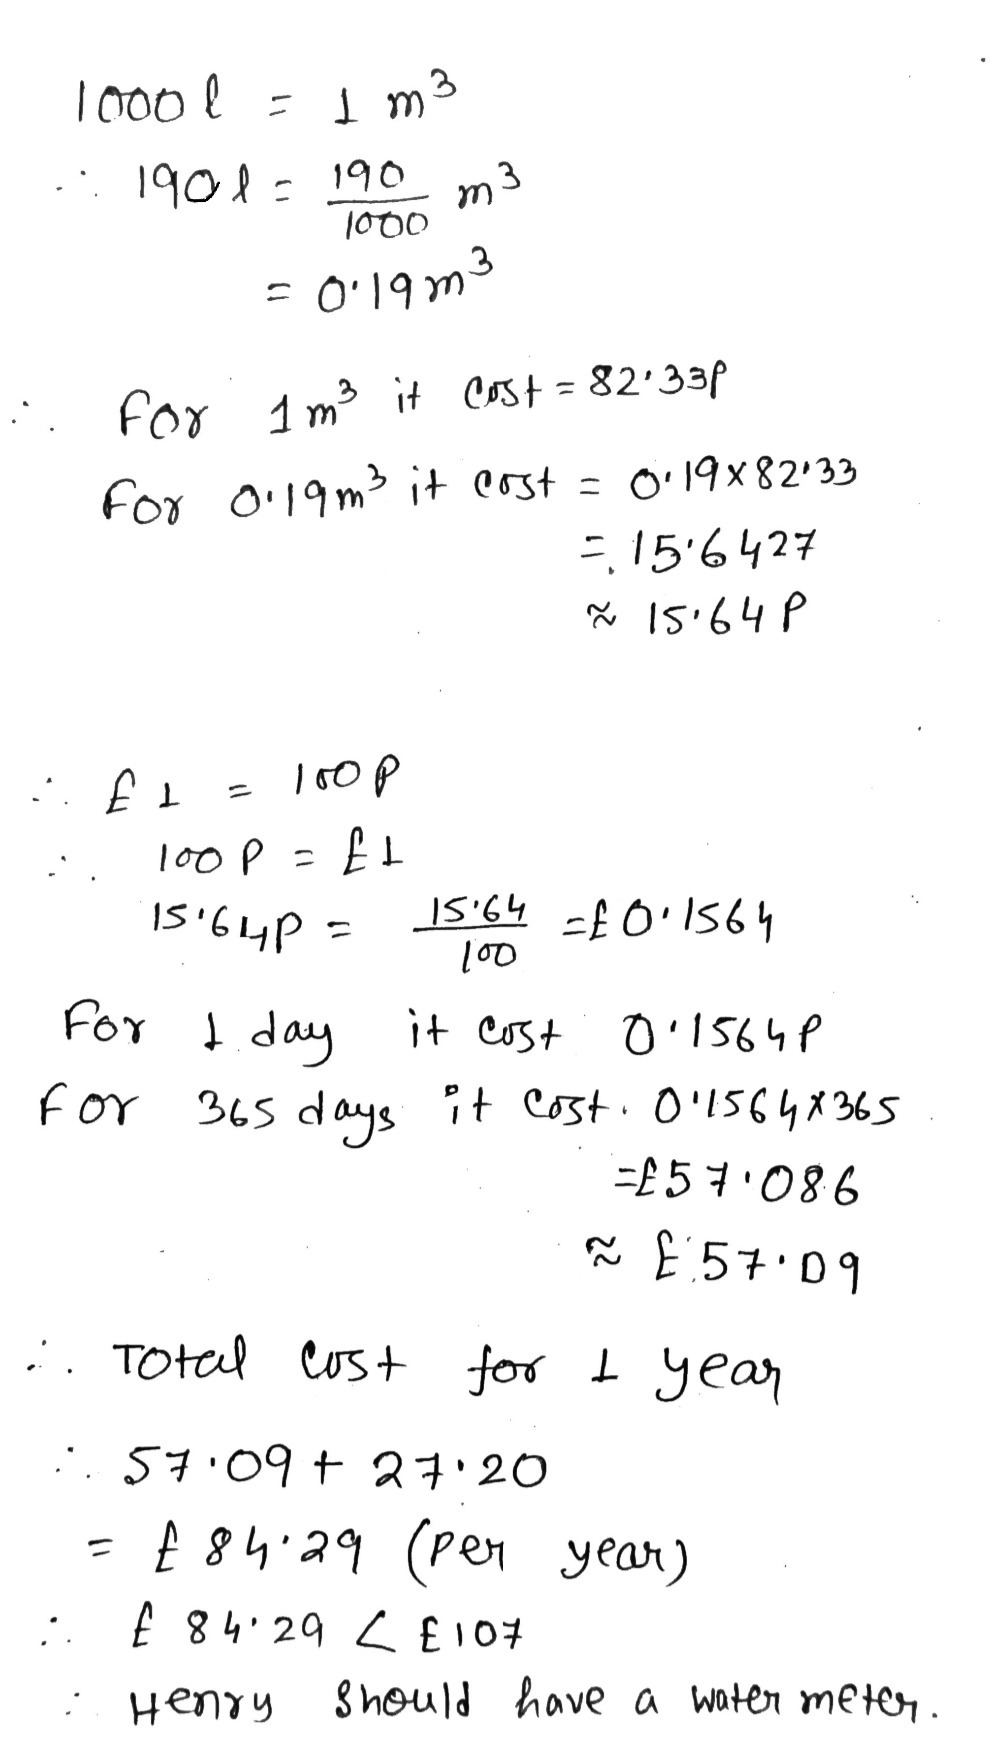 1000 l = 1 m³
∴ 190 l = 190/1000 m³
= 0·19 m³
∴ For 1 m³ it cost = 82·33p
For 0·19 m³ it cost = 0·19 × 82·33
= 15·6427
≈ 15·64 P
∴ £1 = 100 P
∴ 100 P = £1
15·64p = 15·64/100 = £0·1564
For 1 day it cost 0·1564 P
For 365 days it cost. 0·1564 × 365
= £57·086
≈ £57·09
∴ Total cost for 1 year
∴ 57·09 + 27·20
= £84·29 (per year)
∴ £84·29 < £107
∴ Henry should have a water meter.